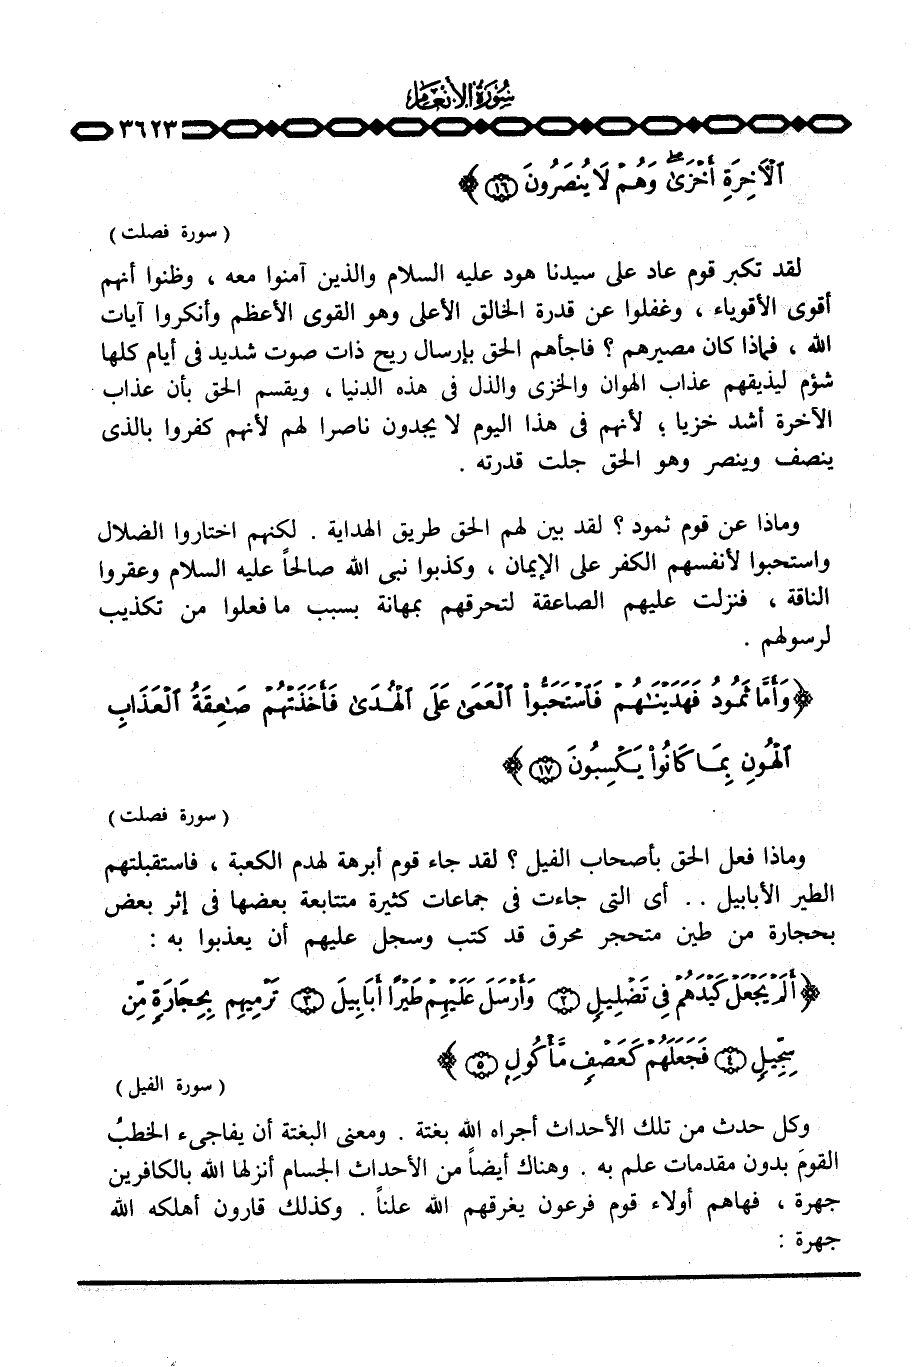 سُورَةُ الأَنْعَام
٣٦٢٣
ٱلْأَخِرَةِ أَخْزَىٰ ۖ وَهُمْ لَا يُنصَرُونَ ﴿١٦﴾ ﴾
( سورة فصلت )
لقد تكبر قوم عاد على سيدنا هود عليه السلام والذين آمنوا معه ، وظنوا أنهم
أقوى الأقوياء ، وغفلوا عن قدرة الخالق الأعلى وهو القوى الأعظم وأنكروا آيات
الله ، فماذا كان مصيرهم ؟ فاجأهم الحق بإرسال ريح ذات صوت شديد فى أيام كلها
شؤم ليذيقهم عذاب الهوان والخزى والذل فى هذه الدنيا ، ويقسم الحق بأن عذاب
الآخرة أشد خزيا ؛ لأنهم فى هذا اليوم لا يجدون ناصرا لهم لأنهم كفروا بالذى
ينصف وينصر وهو الحق جلت قدرته .
وماذا عن قوم ثمود ؟ لقد بين لهم الحق طريق الهداية . لكنهم اختاروا الضلال
واستحبوا لأنفسهم الكفر على الإيمان ، وكذبوا نبى الله صالحاً عليه السلام وعقروا
الناقة ، فنزلت عليهم الصاعقة لتحرقهم بمهانة بسبب ما فعلوا من تكذيب
لرسولهم .
﴿ وَأَمَّا ثَمُودُ فَهَدَيْنَٰهُمْ فَٱسْتَحَبُّوا۟ ٱلْعَمَىٰ عَلَى ٱلْهُدَىٰ فَأَخَذَتْهُمْ صَٰعِقَةُ ٱلْعَذَابِ
ٱلْهُونِ بِمَا كَانُوا۟ يَكْسِبُونَ ﴿١٧﴾ ﴾
( سورة فصلت )
وماذا فعل الحق بأصحاب الفيل ؟ لقد جاء قوم أبرهة لهدم الكعبة ، فاستقبلتهم
الطير الأبابيل .. أى التى جاءت فى جماعات كثيرة متتابعة بعضها فى إثر بعض
بحجارة من طين متحجر محرق قد كتب وسجل عليهم أن يعذبوا به :
﴿ أَلَمْ يَجْعَلْ كَيْدَهُمْ فِى تَضْلِيلٍ ﴿٢﴾ وَأَرْسَلَ عَلَيْهِمْ طَيْرًا أَبَابِيلَ ﴿٣﴾ تَرْمِيهِم بِحِجَارَةٍ مِّن
سِجِّيلٍ ﴿٤﴾ فَجَعَلَهُمْ كَعَصْفٍ مَّأْكُولٍ ﴿٥﴾ ﴾
( سورة الفيل )
وكل حدث من تلك الأحداث أجراه الله بغتة . ومعنى البغتة أن يفاجىء الخطبُ
القومَ بدون مقدمات علم به . وهناك أيضاً من الأحداث الجسام أنزلها الله بالكافرين
جهرة ، فهاهم أولاء قوم فرعون يغرقهم الله علناً . وكذلك قارون أهلكه الله
جهرة :